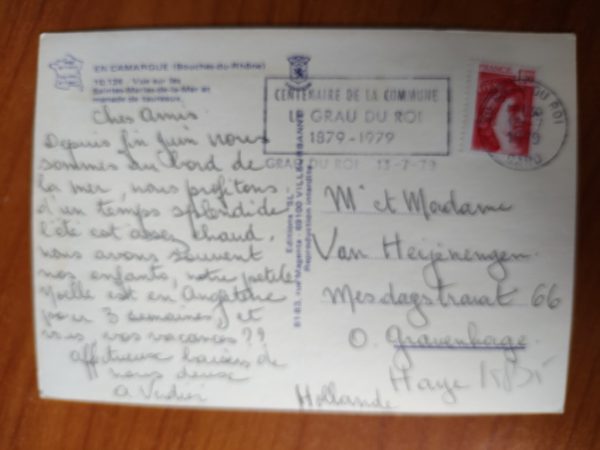 EN CAMARGUE (Bouches-du-Rhône)
Vue sur les
Saintes-Maries-de-la-Mer et
manade de taureaux.
Chers Amis
Depuis fin Juin nous
sommes au bord de
la mer, nous profitons
d'un temps splendide
l'été est assez chaud.
nous avons souvent
nos enfants, notre petite
Joelle est en Angleterre
pour 3 semaines, et
vous vos vacances ??
affectueux baisers de
nous deux
Editions "SL"
81-83, rue Magenta - 69100 VILLEURBANNE
Reproduction interdite
CENTENAIRE DE LA COMMUNE
LE GRAU DU ROI
1879-1979
GRAU DU ROI 13-7-79
FRANCE
M' et Madame
Van Heijenengen.
Mesdagstraat 66
Gravenhage.
Haye
Hollande